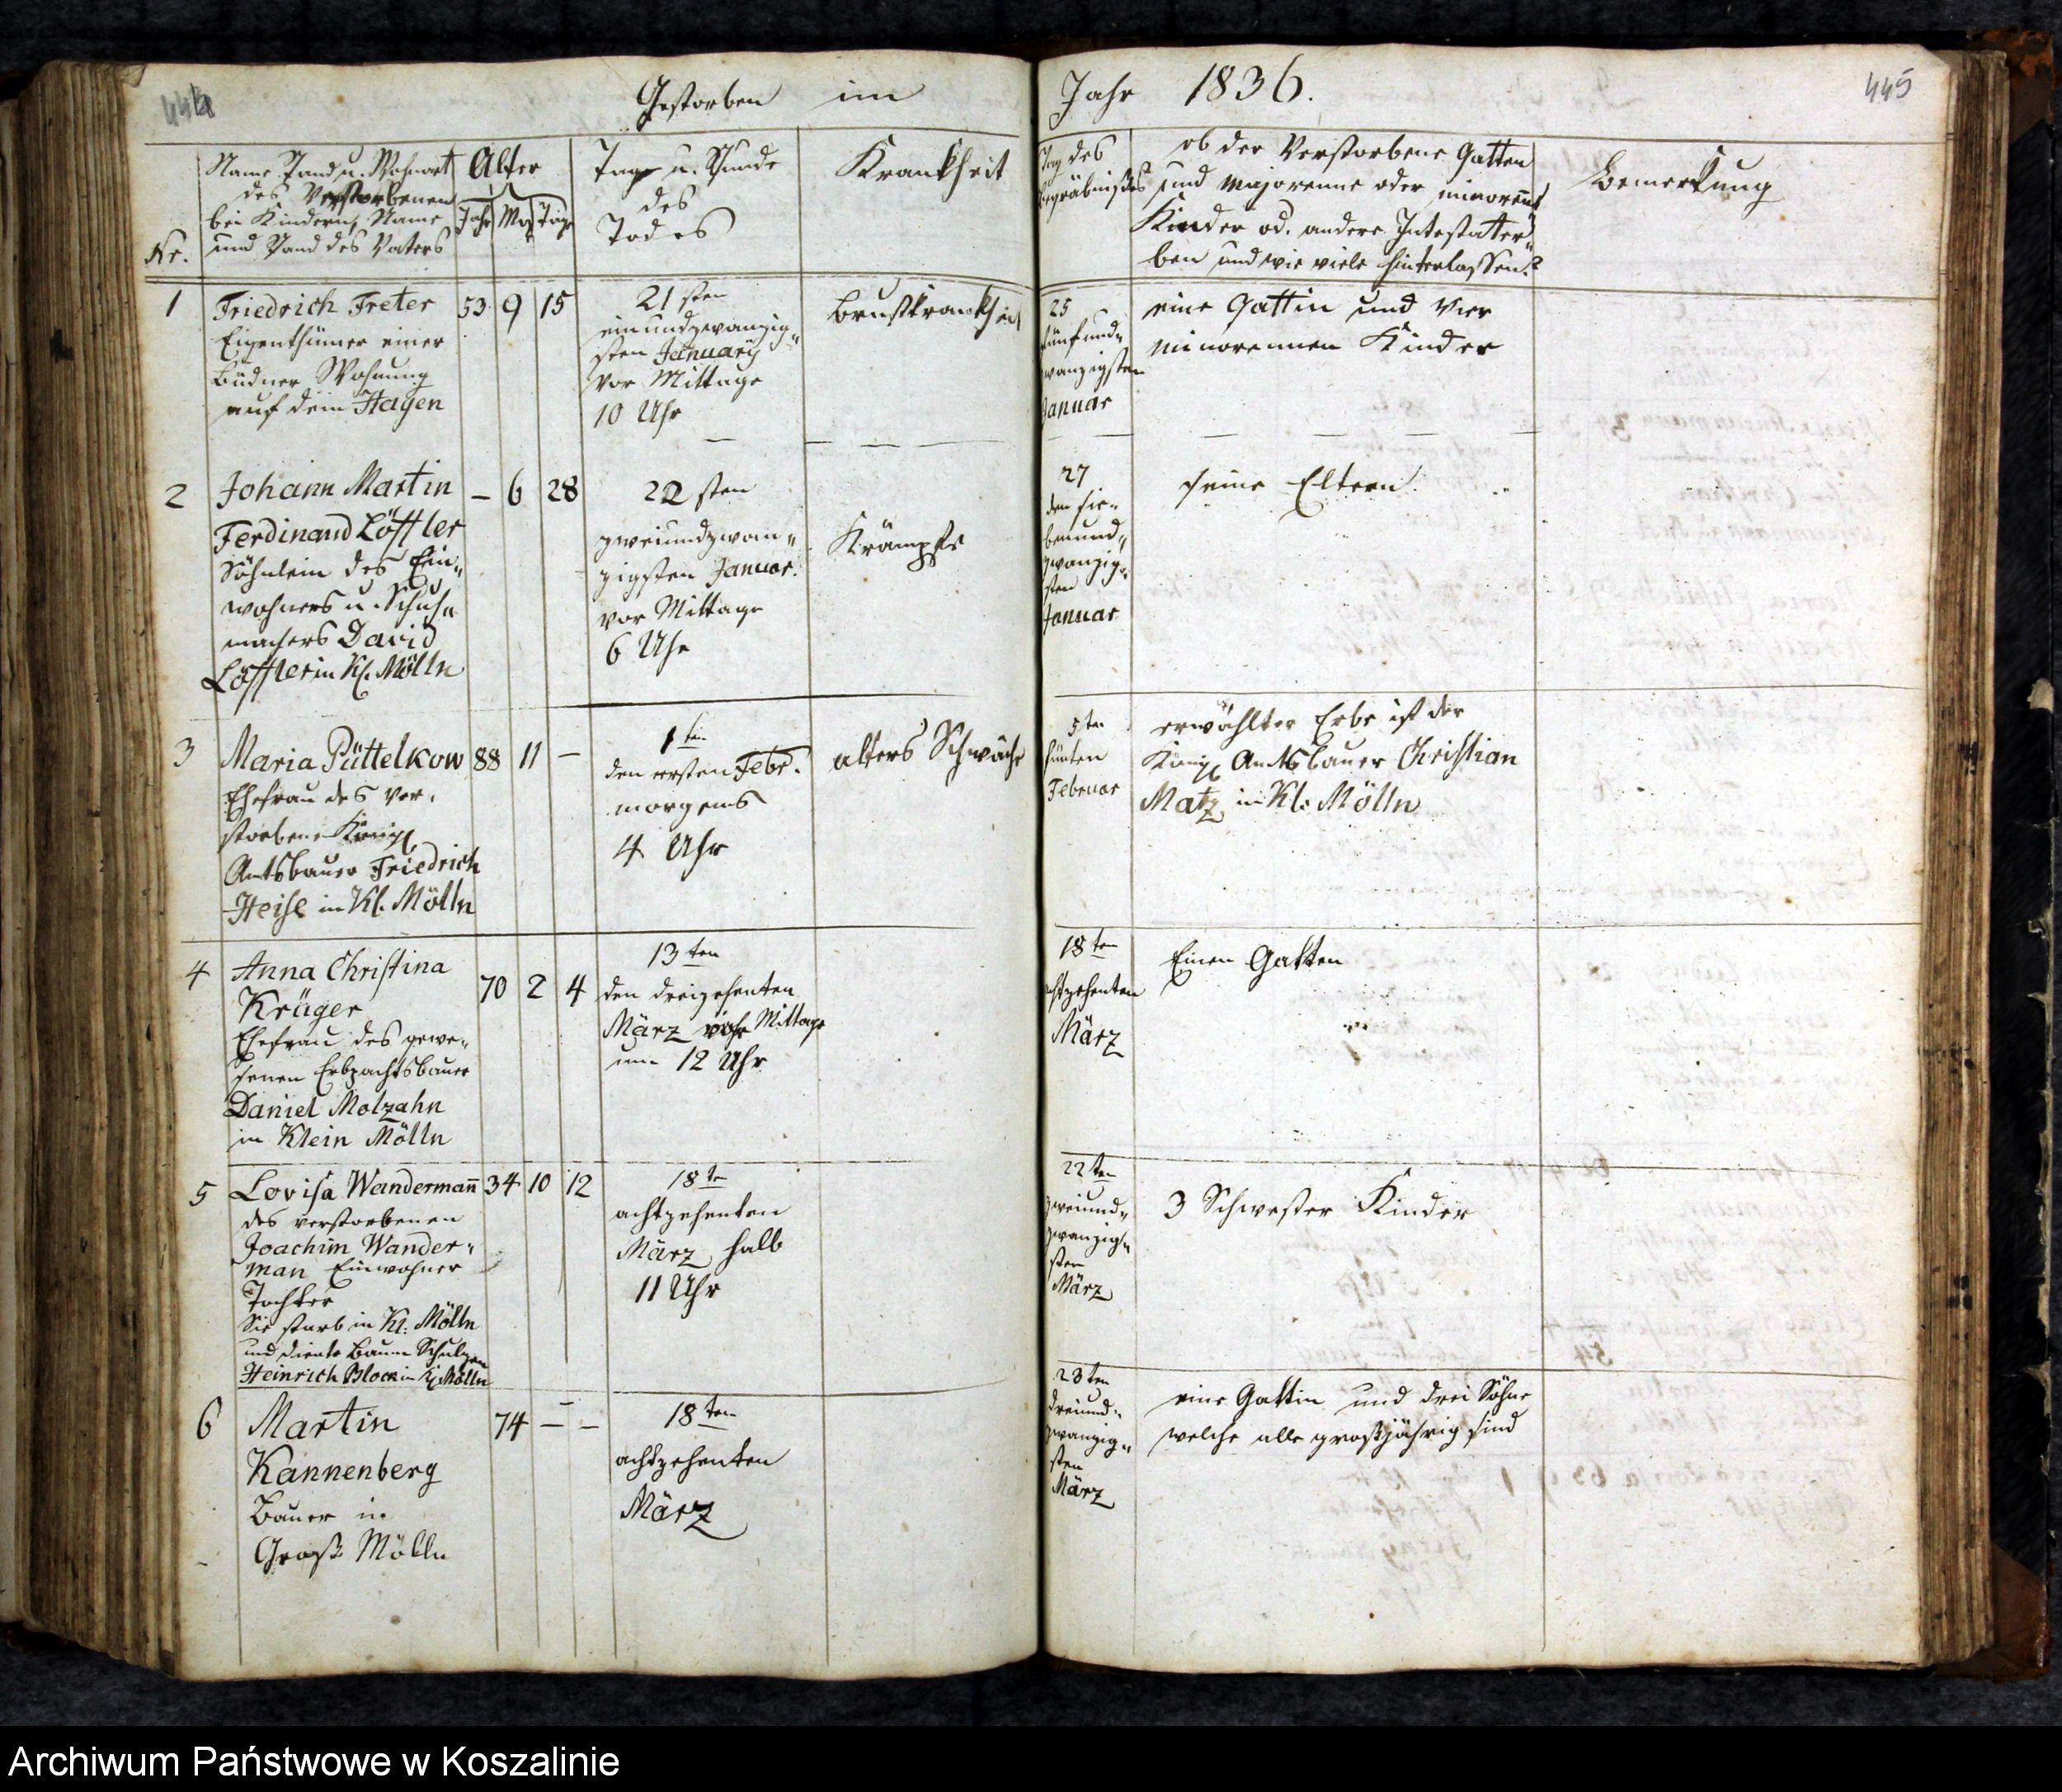 444
Gestorben im
Nr.
Name, Stand u. Wohnort
des Verstorbenen
bei Kindern, Name
und Stand des Vaters
Alter
Jahr Mo. Tage
Tag u. Stunde
des
Todes
Krankheit
1
Friedrich Freter
Eigenthümer einer
Büdner Wohnung
auf dem Hagen
53 9 15
21sten
einundzwanzig-
sten January
vor Mittage
10 Uhr
Brustkrankheit
2
Johann Martin
Ferdinand Löffler
Söhnlein des Ein-
wohners u. Schuh-
machers David
Löffler in Kl. Mölln
— 6 28
22sten
zweiundzwan-
zigsten Januar.
vor Mittage
6 Uhr
Krämpfe
3
Maria Püttelkow
Ehefrau des ver-
storbene Königl.
Amtsbauer Friedrich
Heise in Kl. Mölln
88 11 —
1ten
den ersten Febr.
morgens
4 Uhr
alters Schwäche
4
Anna Christina
Krüger
Ehefrau des gewe-
senen Erbpachtsbauer
Daniel Molzahn
in Klein Mölln
70 2 4
13ten
den dreizehenten
März vor Mittage
um 12 Uhr
5
Lovisa Wandermañ
des verstorbenen
Joachim Wander-
man Einwohner
Tochter
Sie starb in Kl: Mölln
und diente beim Schulzen
Heinrich Block in Kl. Mölln
34 10 12
18ten
achtzehenten
März halb
11 Uhr
6
Martin
Kannenberg
Bauer in
Groß Mölln
74 — —
18ten
achtzehenten
März
Jahr 1836.
445
Tag des
Begräbnißes
ob der Verstorbene Gatten
und majorenne oder minoreñe
Kinder od. andere Intestater-
ben und wie viele hinterlassen?
Bemerkung
25
fünfund-
zwanzigsten
Januar
eine Gattin und vier
minorennen Kinder
27
den sie-
benund-
zwanzig-
sten
Januar
seine Eltern.
5ten
fünften
Februar
erwählter Erbe ist der
Königl. Amtsbauer Christian
Matz in Kl: Mölln
18ten
achtzehenten
März
Einen Gatten
22ten
zweiund-
zwanzig-
sten
März
3 Schwester Kinder
23ten
dreiund-
zwanzig-
sten
März
eine Gattin und drei Söhne
welche alle großjährig sind
Archiwum Państwowe w Koszalinie